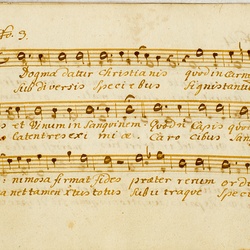 No. 3.
Dogma datur Christianis quod in carn
Sub diversis Speciebus Signis tantum
et Vinum in Sanguinem. Quod n̄ Capis quod
Latent res exi miæ. Caro cibus San
nimosa firmat fides præter rerum ordi
manet tamen Xtus totus Sub utraque Speci